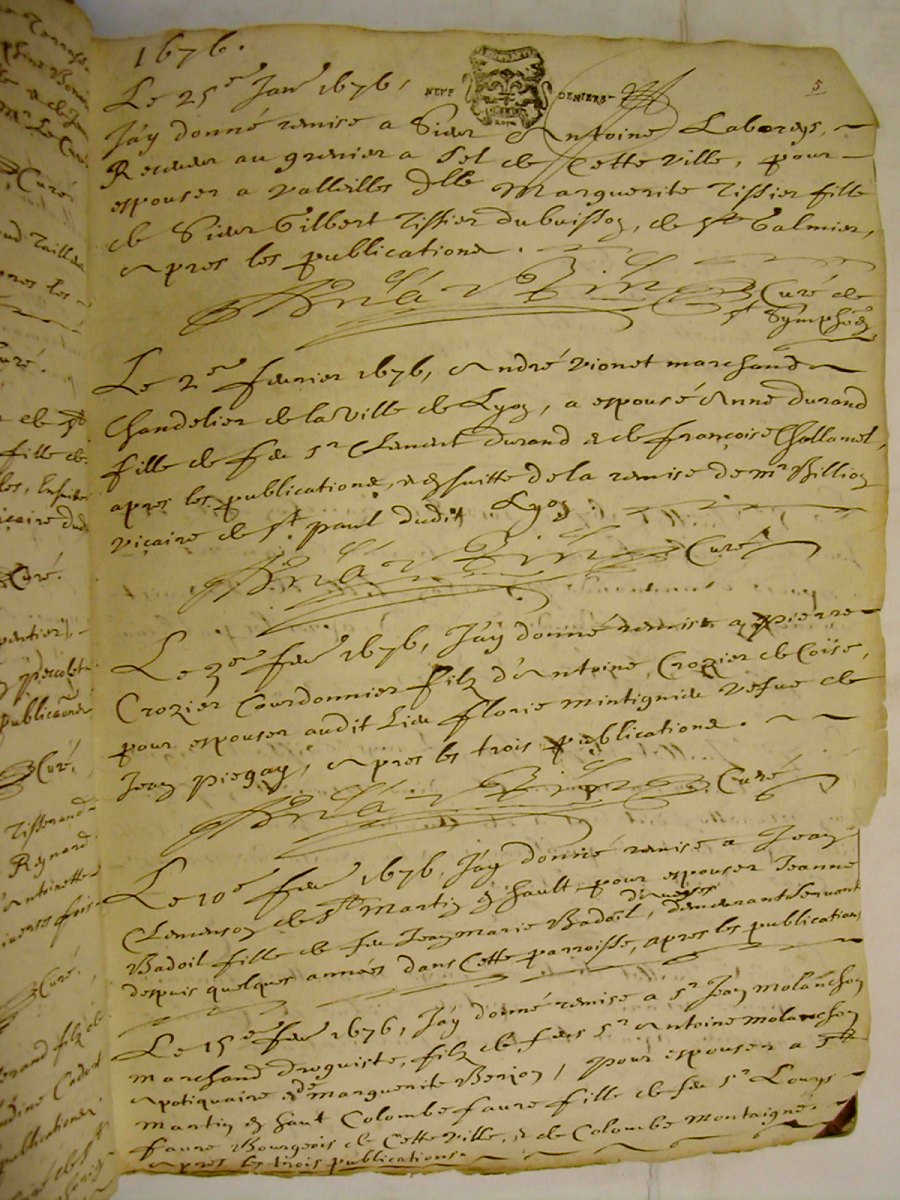 1676.
5
NEFF DENIERS
Le 25e Janr 1676,
J'ay donné remise a Sieur Antoine Laboreys,
Receueur au grenier a Sel de Cette Ville, pour
espouser a Valleilles dlle Marguerite Tissier fille
de Sieur Gilbert Tissier dubuisson, de St Galmier,
apres les publications.
Curé de
St Symphõ
Le 2e feurier 1676, André Vionet marchand
Chandelier de la Ville de Lyon, a espousé Anne durand
fille de feu Sr Clement durand & de françoise Chollanel,
apres les publications, & en suitte de la remise de mr Billion
vicaire de St paul dudit Lyon.
Curé
Le 3e feur 1676, J'ay donné remise a pierre
Crozier Courdonnier filz d'Antoine Crozier de Coise,
pour espouser audit Lieu florie mintignieu vefue de
Jean piegay, apres les trois publications.
Curé
Le 10e feur 1676, J'ay donné remise a Jean
Clemenson de St Martin en hault, pour espouser Jeanne
Badoil fille de feu Jean marie Badoil, demeurant Seruant
depuis quelques années dans Cette parroisse, apres les publications
Le 15e feur 1676, J'ay donné remise a Sr Jean molanchon
marchand droguiste, filz de feu Sr Antoine molanchon
apotiquaire & de marguerite Berjon, pour espouser a St
Martin en haut Colombe faure fille de feu Sr Louys
faure Bourgeois de Cette Ville, & de Colombe Montaigne,
apres les trois publications.
Curé
Curé.
fille de
Curé.
publica͠ons
Curé,
Tisserand
Reynard
Antoinette
Curé.
filz de
publications